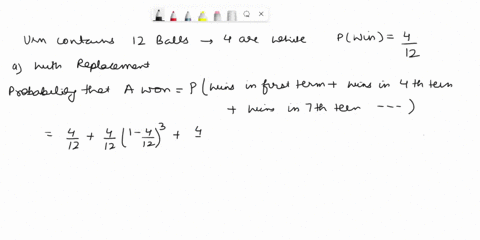 Urn contains 12 Balls → 4 are white P(win) = 4/12
a) with Replacement
Probability that A won = P(wins in first term + wins in 4th term
+ wins in 7th term ---)
= 4/12 + 4/12 (1 - 4/12)^3 + 4